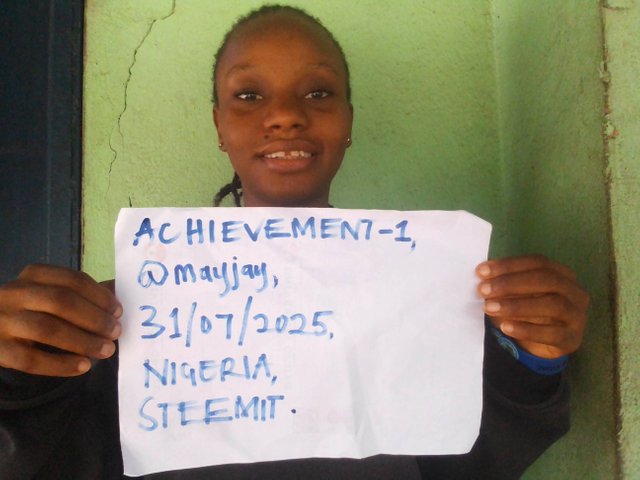 ACHIEVEMENT-1,
@mayjay,
31/07/2025,
NIGERIA,
STEEMIT.